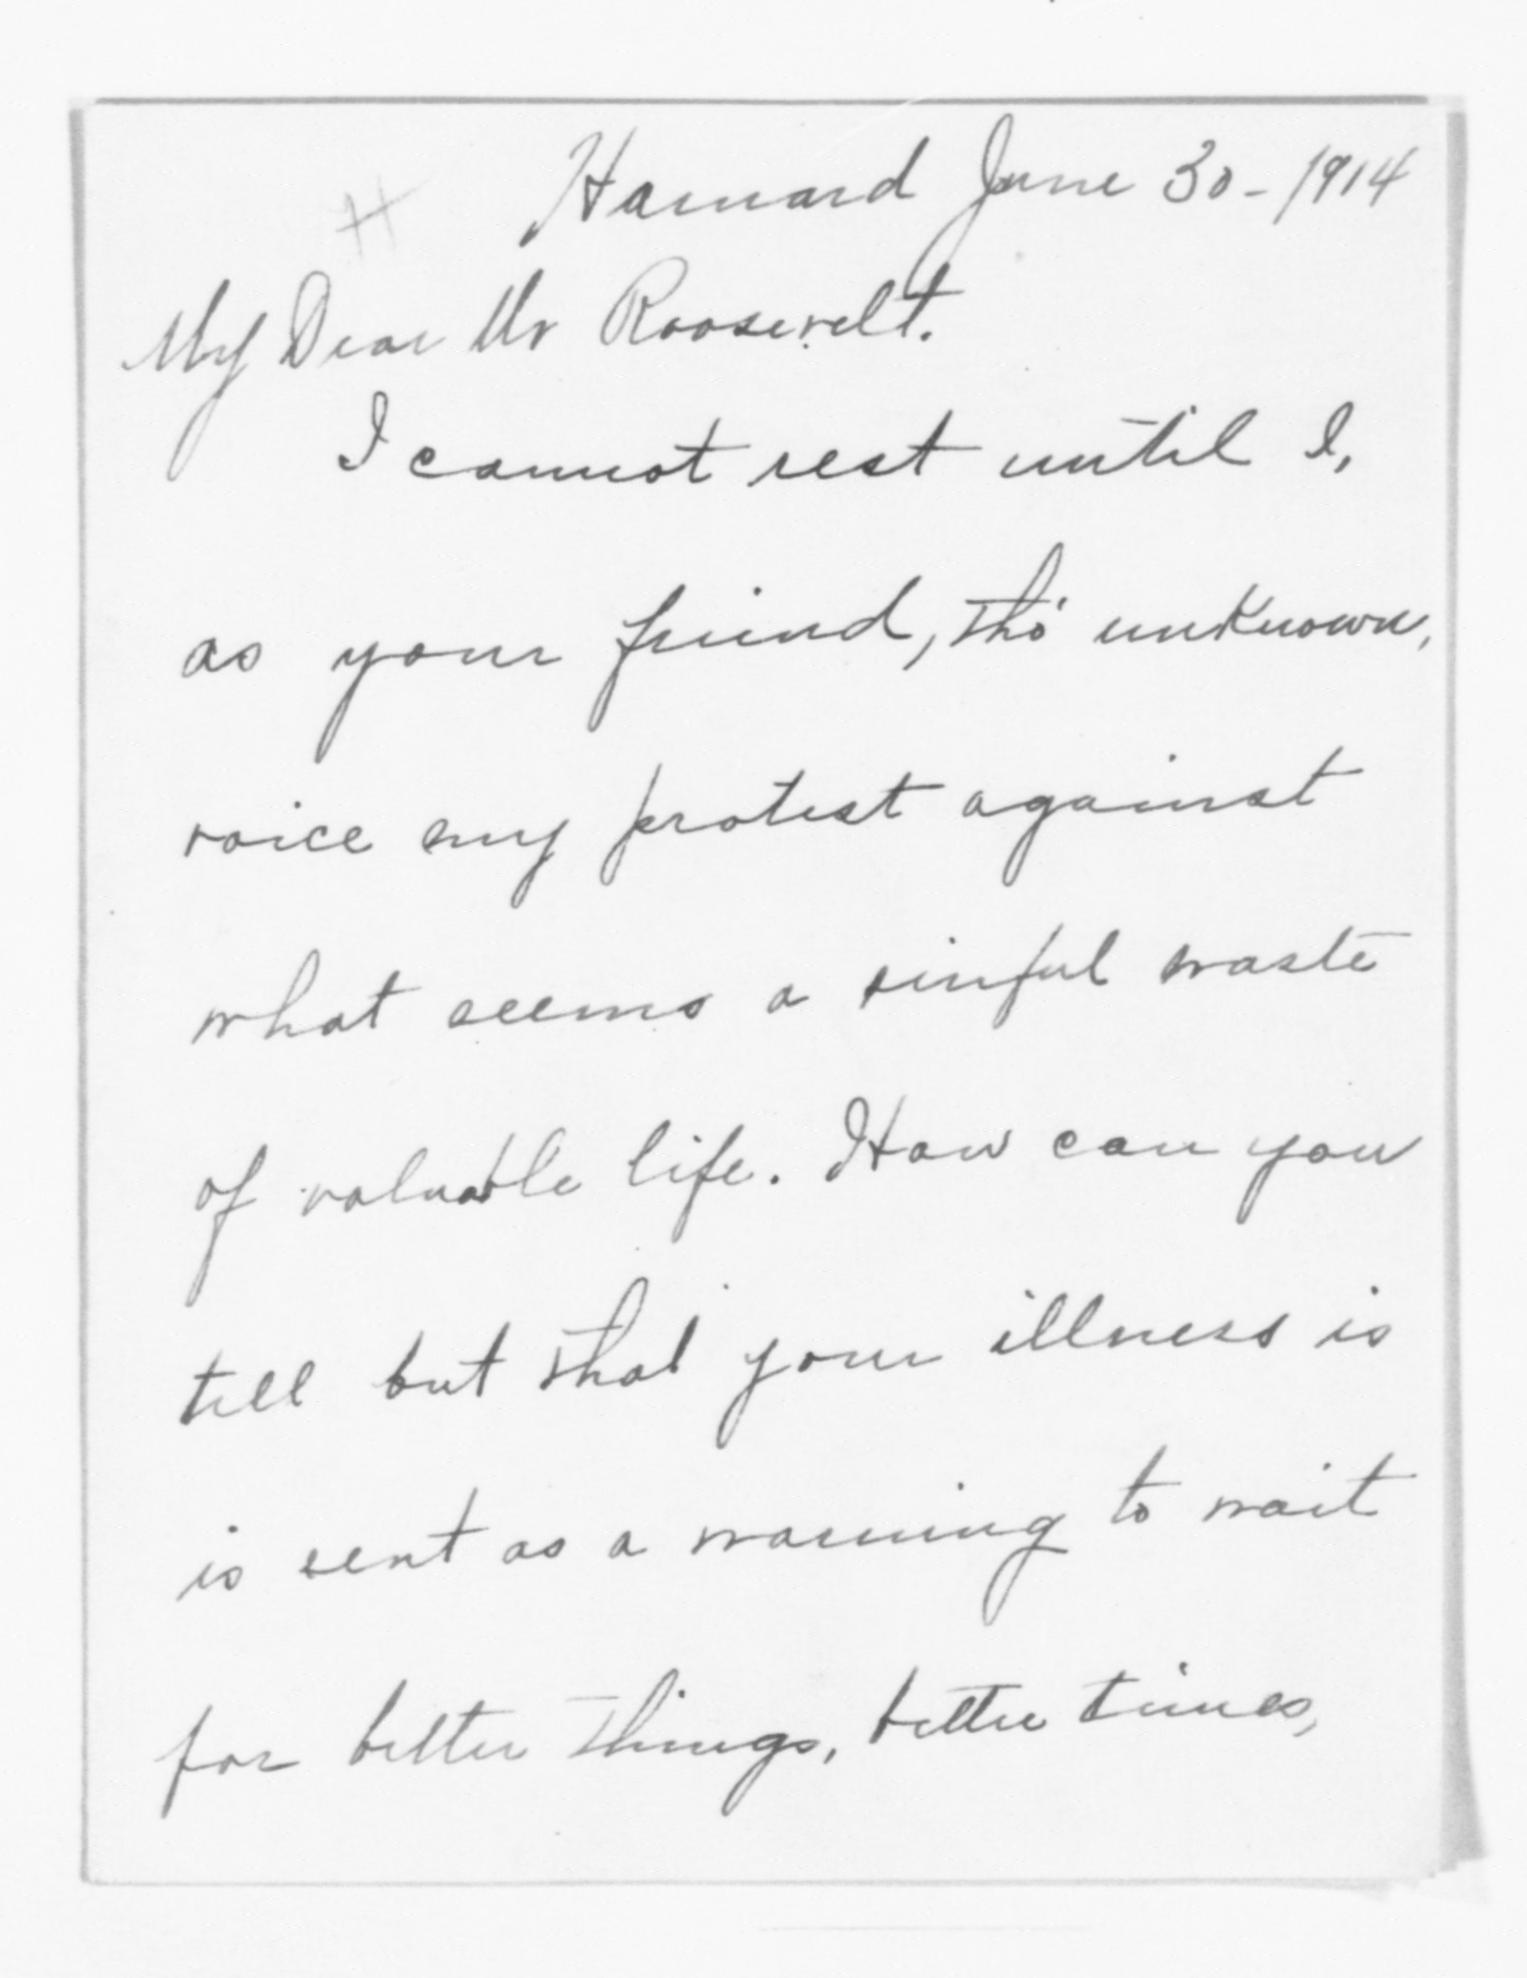 Harvard June 30 - 1914
H
My Dear Mr Roosevelt.
I cannot rest until I,
as your friend, tho' unknown,
voice my protest against
what seems a sinful waste
of valuable life. How can you
tell but that your illness is
is sent as a warning to wait
for better things, better times,